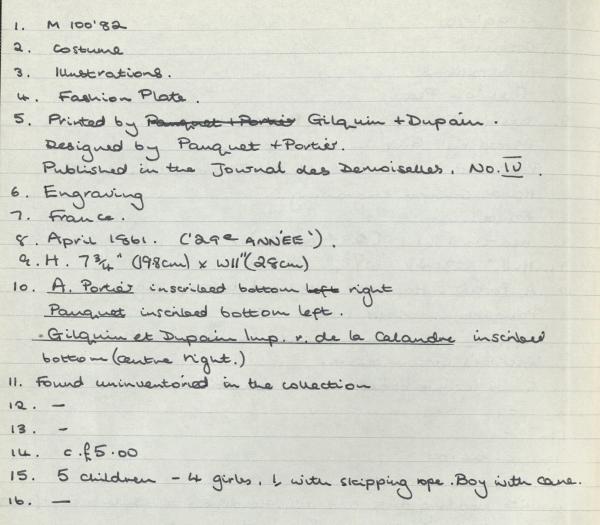 1. M 100'82
2. Costume
3. Illustrations.
4. Fashion Plate.
5. Printed by Panquet + Portier Gilquin + Dupain.
Designed by Panquet + Portier.
Published in the Journal des Demoiselles. No. IV.
6. Engraving
7. France.
8. April 1861. ('29e ANNÉE').
9. H. 7 3/4" (19.8cm) x W11" (28cm)
10. A. Portier inscribed bottom left right
Panquet inscribed bottom left.
Gilquin et Dupain Imp. r. de la Calandre inscribed
bottom (centre right.)
11. Found uninventoried in the collection
12. —
13. —
14. c.£5.00
15. 5 children - 4 girls, 1 with skipping rope. Boy with cane.
16. —